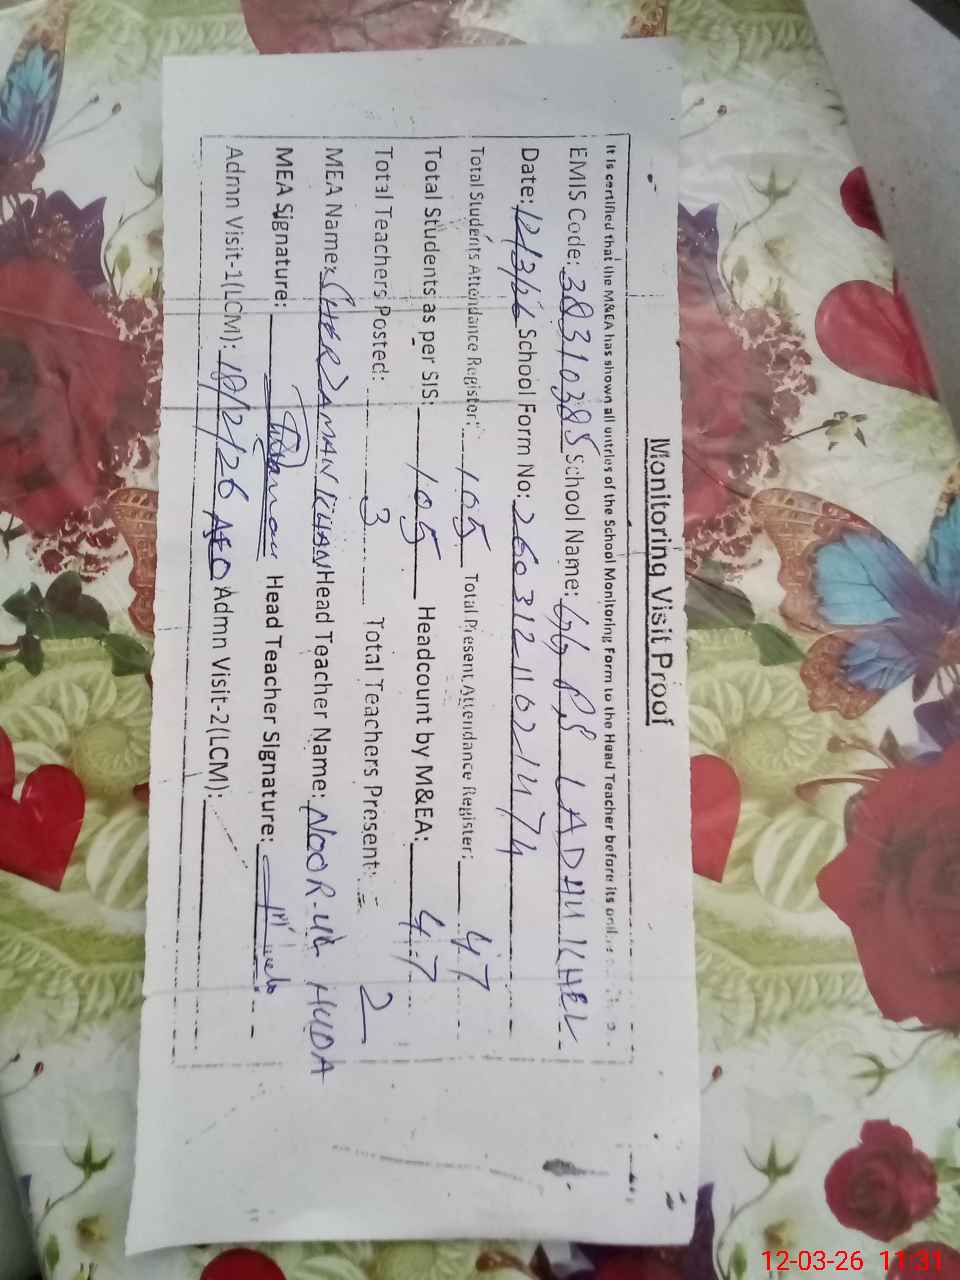 Monitoring Visit Proof
It is certified that the M&EA has shown all entries of the School Monitoring Form to the Head Teacher before its
EMIS Code: 38310385 School Name: GGPS LADHU KHEL
Date: 12/3/26 School Form No: 26031211021474
Total Students Attendance Register: 105 Total Present Attendance Register: 47
Total Students as per SIS: 105 Headcount by M&EA: 47
Total Teachers Posted: 3 Total Teachers Present: 2
MEA Name: SHER ZAMAN KHAN Head Teacher Name: NOOR-UL HUDA
MEA Signature: Head Teacher Signature:
Admn Visit-1(LCM): 18/2/26 Admn Visit-2(LCM):
12-03-26 11:31